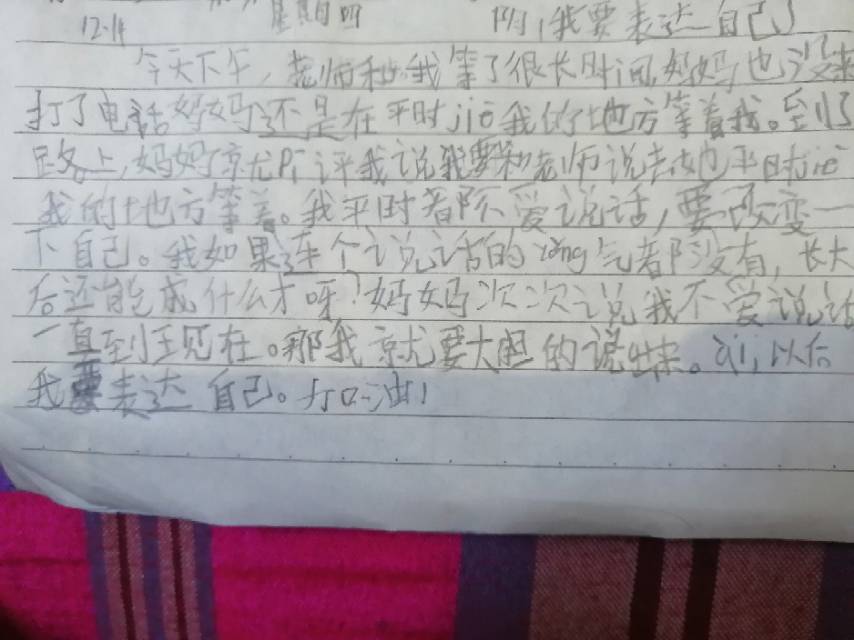 12.14 星期四 阴 我要表达自己
今天下午，老师和我等了很长时间妈妈也没来
打了电话妈妈还是在平时jiē我的地方等着我。到了
路上，妈妈就Pī评我说我要和老师说去她平时jiē
我的地方等着。我平时都不爱说话，要改变一
下自己。我如果连个说话的yǒng气都没有，长大
后还能成什么才呀？妈妈次次说我不爱说话
一直到现在。那我就要大胆的说出来。ài，以后
我要表达自己。加油！